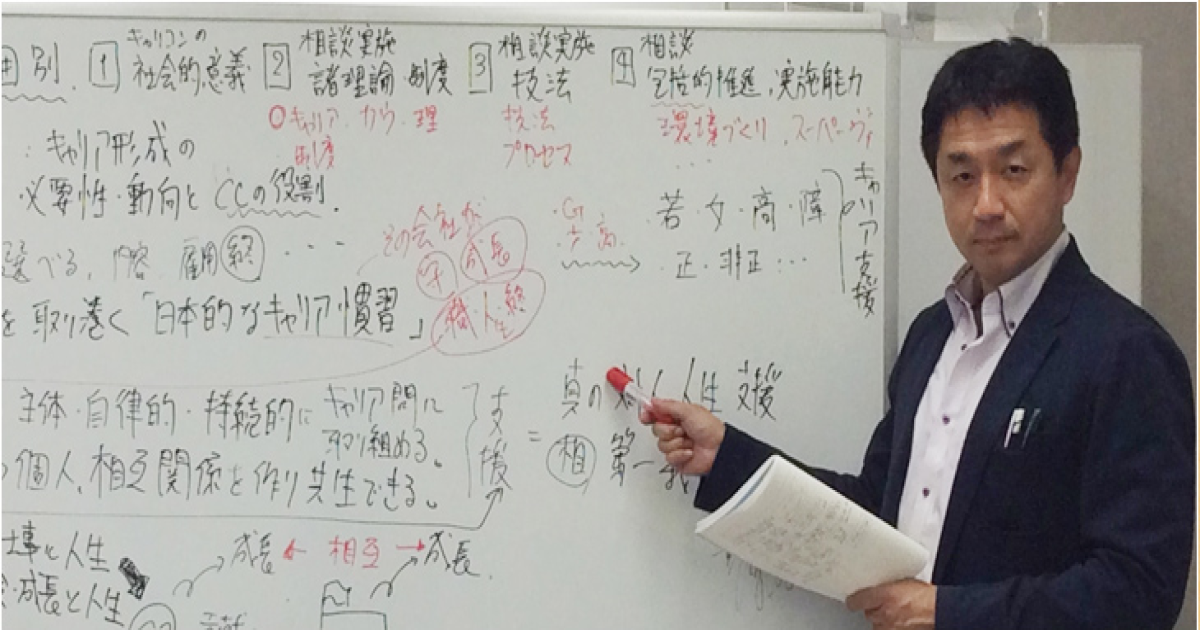 別. 1 キャリコンの社会的意義 2 相談実施 諸理論・制度 3 相談実施 技法 4 相談 包括的推進、実施能力
○キャリア.カウ.理 制度
技法 プロセス
環境づくり,スーパーヴィ
...
: キャリア形成の
必要性・動向とCCの役割.
べる, 内容 雇用 終 ...
その会社が
守 成長
職・人生・終
・G
若・女・高・障
正・非正...
キャリア支援
を取り巻く「日本的なキャリア慣習」
主体・自律的・持続的に キャリア問に 取り組める。
個人,相互関係を作り共生できる。
支援
= 真の 人生 支援
相 第一
事と人生
成長と人生
成長 ← 相互 → 成長.